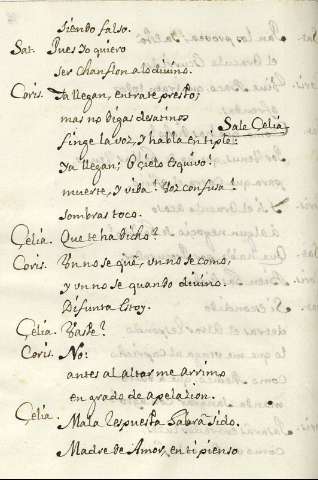 siendo falso.
Sat. Pues Yo quiero
ser chanflon a lo divino.
Coris. Ya llegan, entrate presto;
mas no digas desatinos
Sale Celia.
finge la voz, y habla en tiple:
Ya llegan; O çielo esquivo!
muerte, y vida! Voz confusa!
sombras toco.
Çelia. Que te ha dicho?
Coris. Un no se què, un no se como,
y un no se quando divino.
Difunta estoy.
Çelia. Vaste?
Coris. No:
antes al altar me arrimo
en grado de apelazion.
Çelia. Mala respuesta habrá sido.
Madre de Amor, en ti pienso